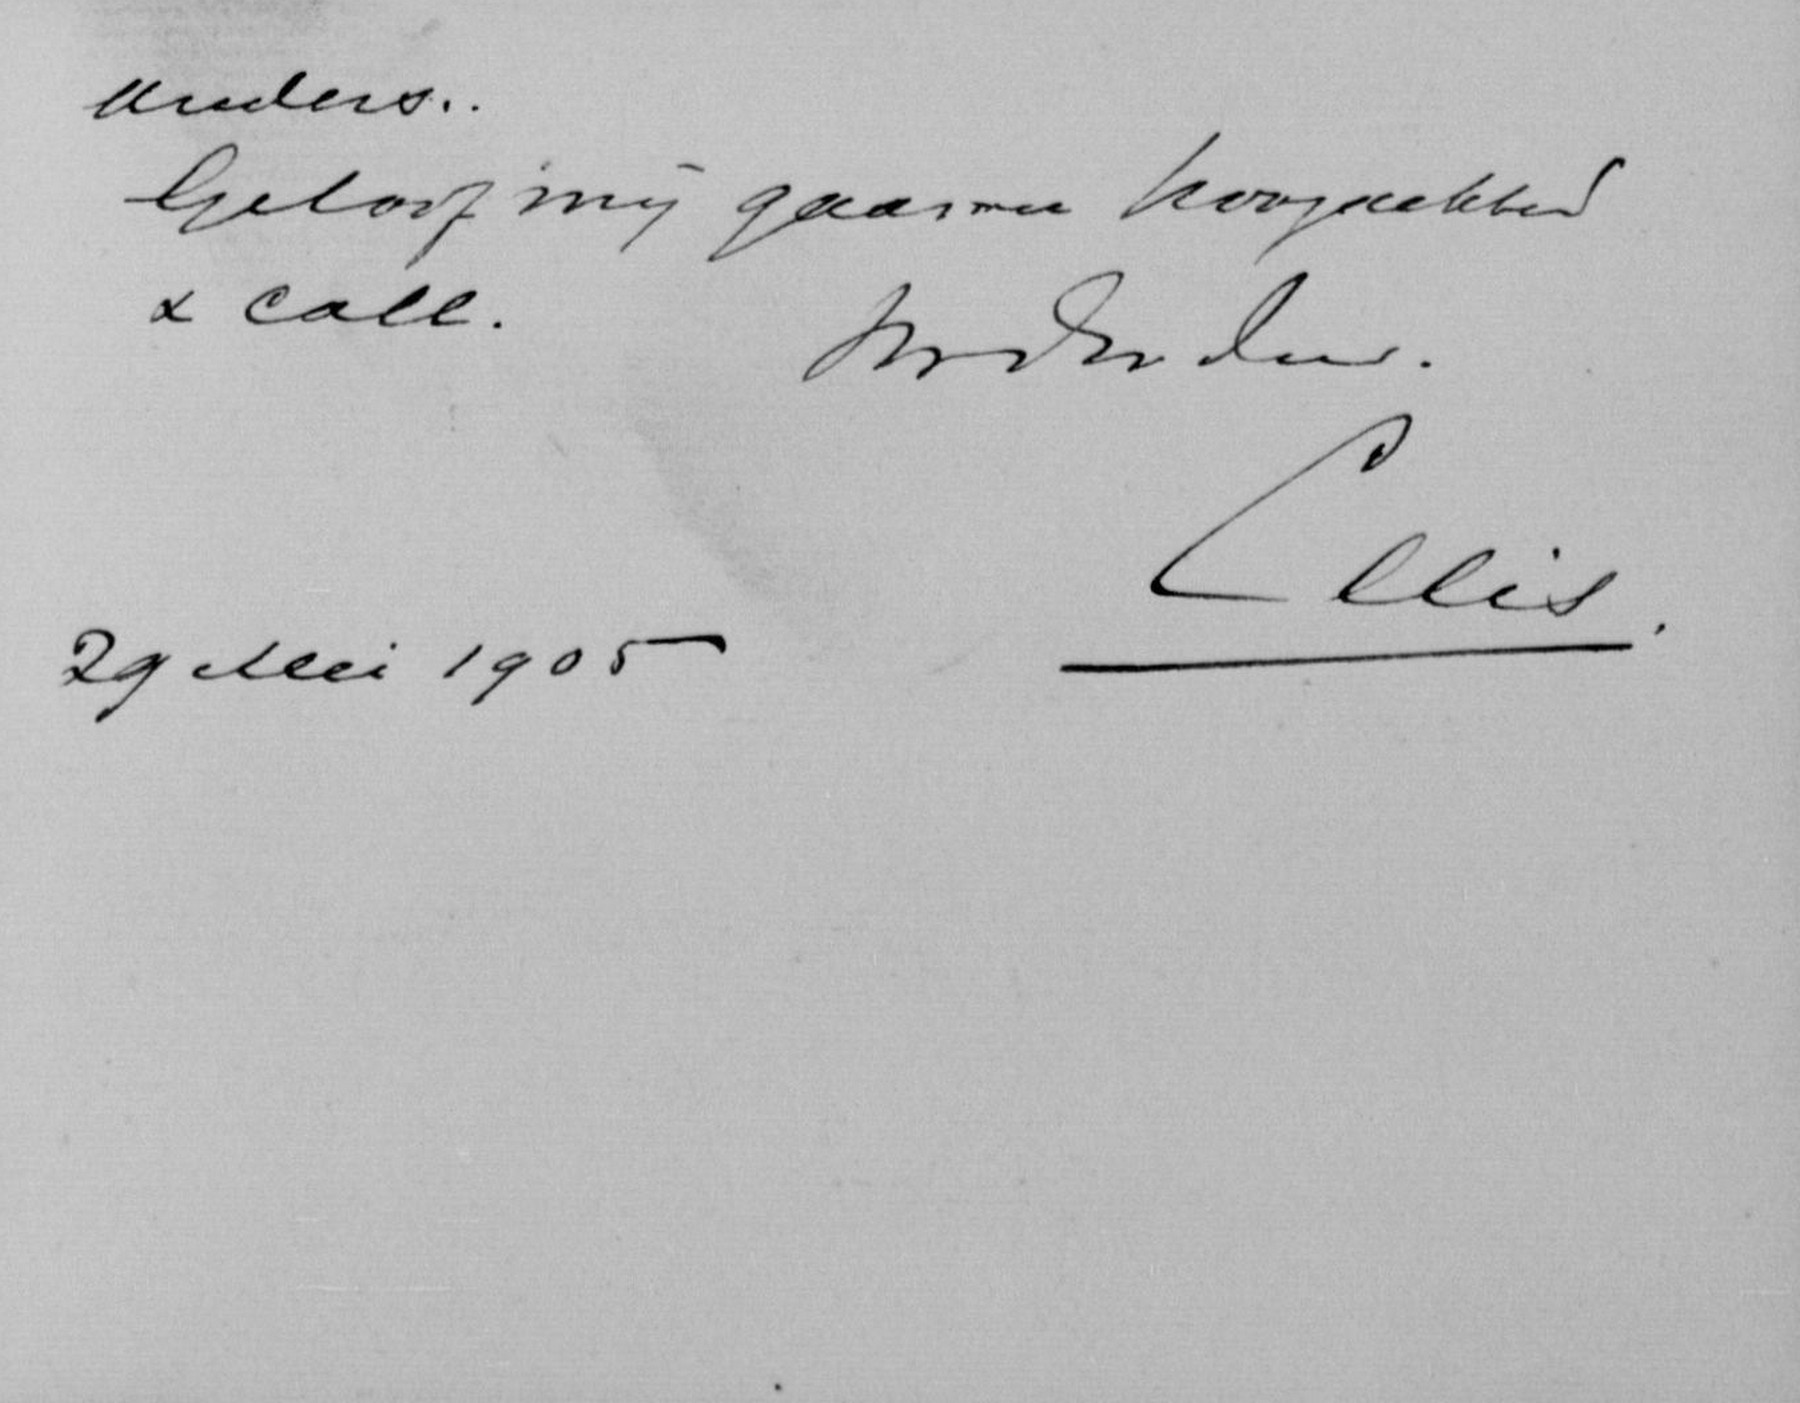 anders..
Geloof mij gaarne hoogachtend
& Coll.
Ellis.
29 Mei 1905